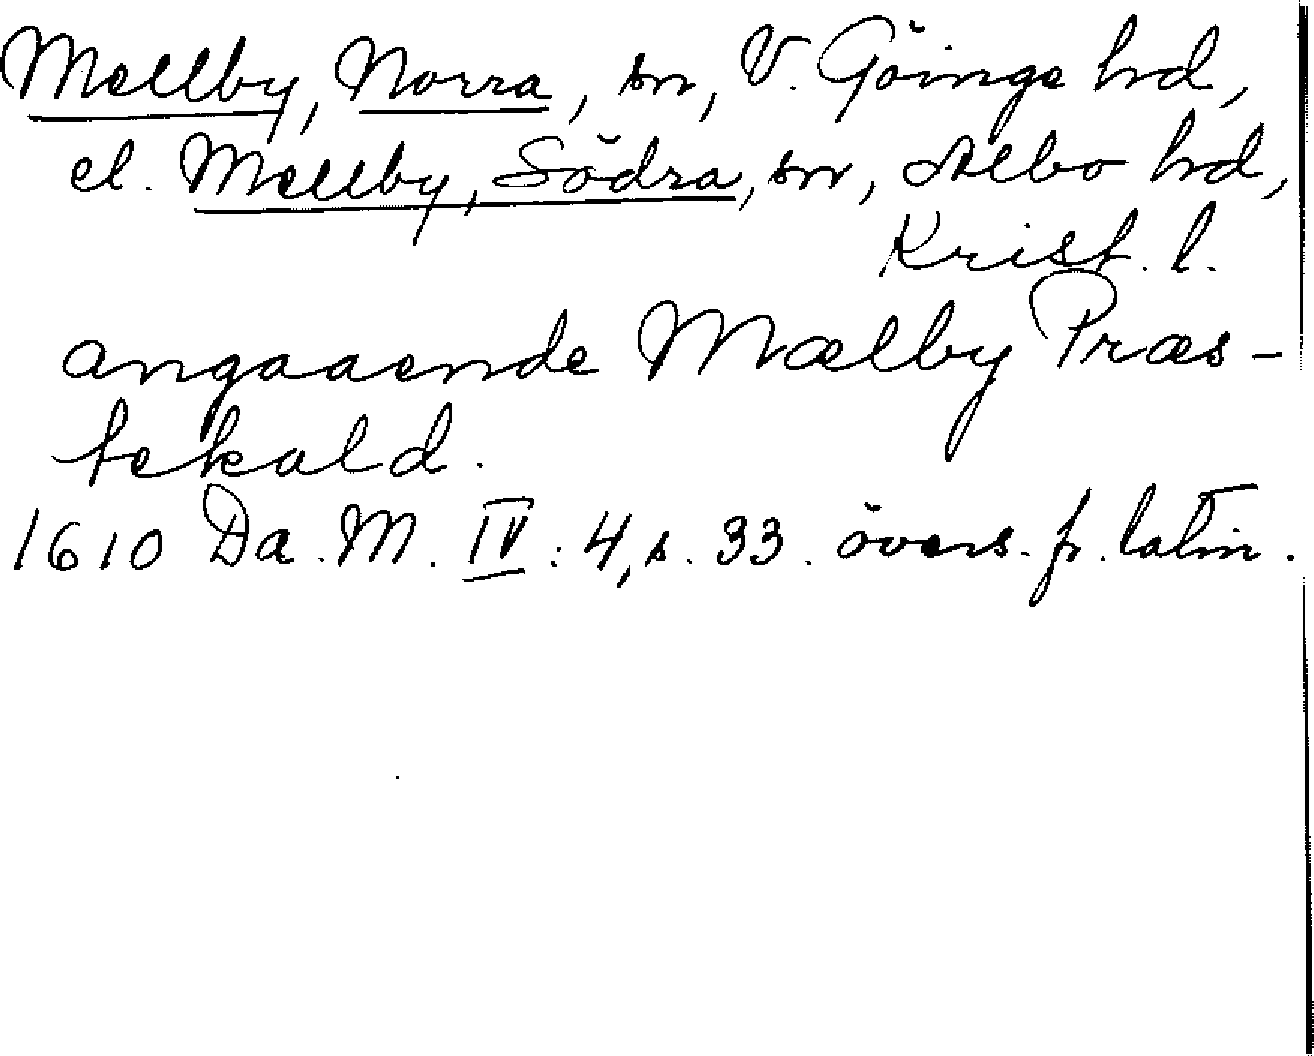 Mellby, Norra, sn, V. Göinge hd,
el. Mellby, Södra, sn, Albo hd,
Krist. l.
angaaende Mælby Præs-
tekald.
1610 Da. M. IV : 4, s. 33. övers. fr. latin.